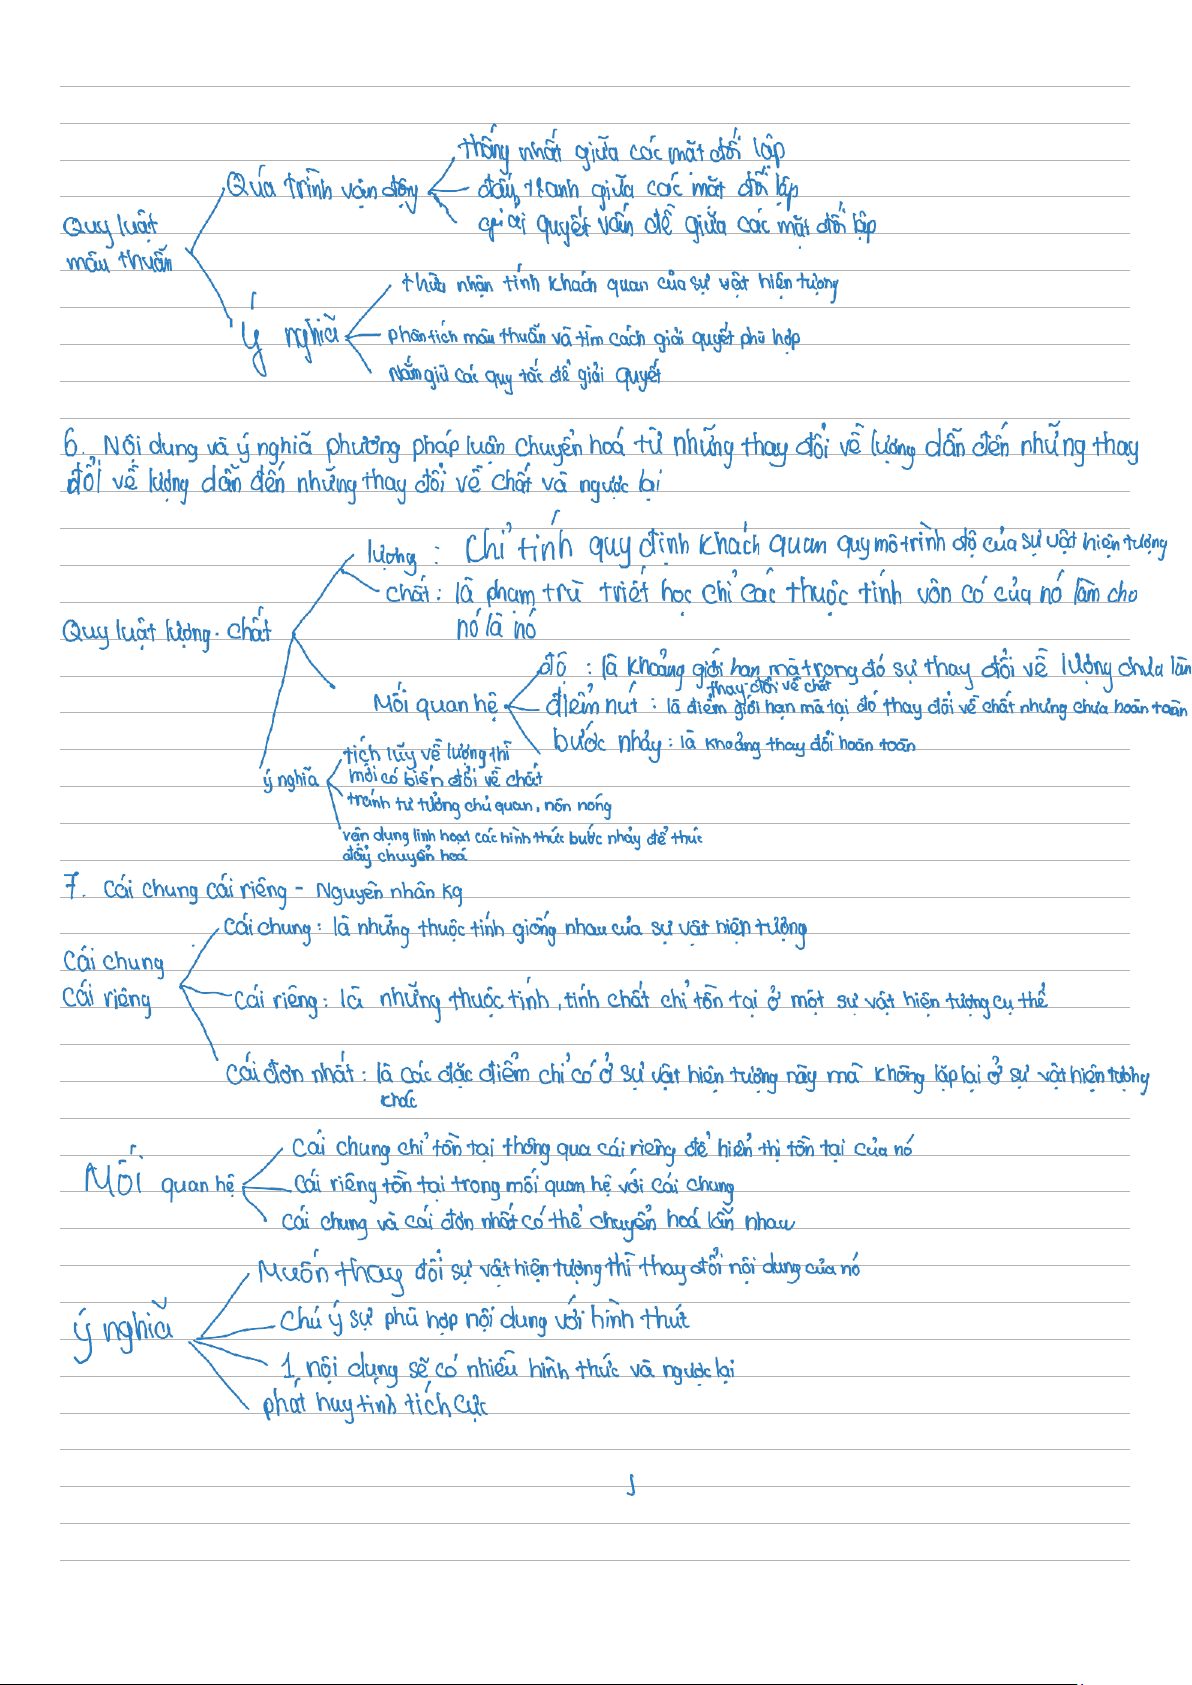 thống nhất giữa các mặt đối lập
Quá trình vận động
đấu tranh giữa các mặt đối lập
giải quyết vấn đề giữa các mặt đối lập
Quy luật
mâu thuẫn
thừa nhận tính khách quan của sự vật hiện tượng
Ý nghĩa
phân tích mâu thuẫn và tìm cách giải quyết phù hợp
Nắm giữ các quy tắc để giải quyết
6. Nội dung và ý nghĩa phương pháp luận chuyển hoá từ những thay đổi về lượng dẫn đến những thay
đổi về lượng dẫn đến những thay đổi về chất và ngược lại
lượng : Chỉ tính quy định khách quan quy mô trình độ của sự vật hiện tượng
chất : là phạm trù triết học chỉ các thuộc tính vốn có của nó làm cho
nó là nó
Quy luật lượng - chất
độ : là khoảng giới hạn mà trong đó sự thay đổi về lượng chưa làm
thay đổi về chất
Mối quan hệ
điểm nút : là điểm giới hạn mà tại đó thay đổi về chất nhưng chưa hoàn toàn
bước nhảy : là khoảng thay đổi hoàn toàn
tích lũy về lượng thì
mới có biến đổi về chất
ý nghĩa
tránh tư tưởng chủ quan, nôn nóng
vận dụng linh hoạt các hình thức bước nhảy để thúc
đẩy chuyển hoá
7. Cái chung cái riêng - Nguyên nhân kq
Cái chung : là những thuộc tính giống nhau của sự vật hiện tượng
Cái chung
Cái riêng
Cái riêng : là những thuộc tính, tính chất chỉ tồn tại ở một sự vật hiện tượng cụ thể
Cái đơn nhất : là các đặc điểm chỉ có ở sự vật hiện tượng này mà không lặp lại ở sự vật hiện tượng
khác
Cái chung chỉ tồn tại thông qua cái riêng để hiển thị tồn tại của nó
Mối quan hệ
Cái riêng tồn tại trong mối quan hệ với cái chung
Cái chung và cái đơn nhất có thể chuyển hoá lẫn nhau
Muốn thay đổi sự vật hiện tượng thì thay đổi nội dung của nó
ý nghĩa
Chú ý sự phù hợp nội dung với hình thức
1 nội dung sẽ có nhiều hình thức và ngược lại
phát huy tính tích cực